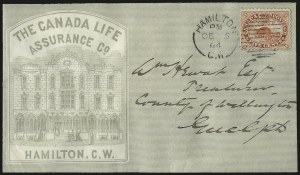 THE CANADA LIFE
ASSURANCE Co
HAMILTON. C.W.
HAMILTON
PM
DE 5
64
C.W.
Wm Hewat Esq
Treasurer
County of Wellington
Guelph